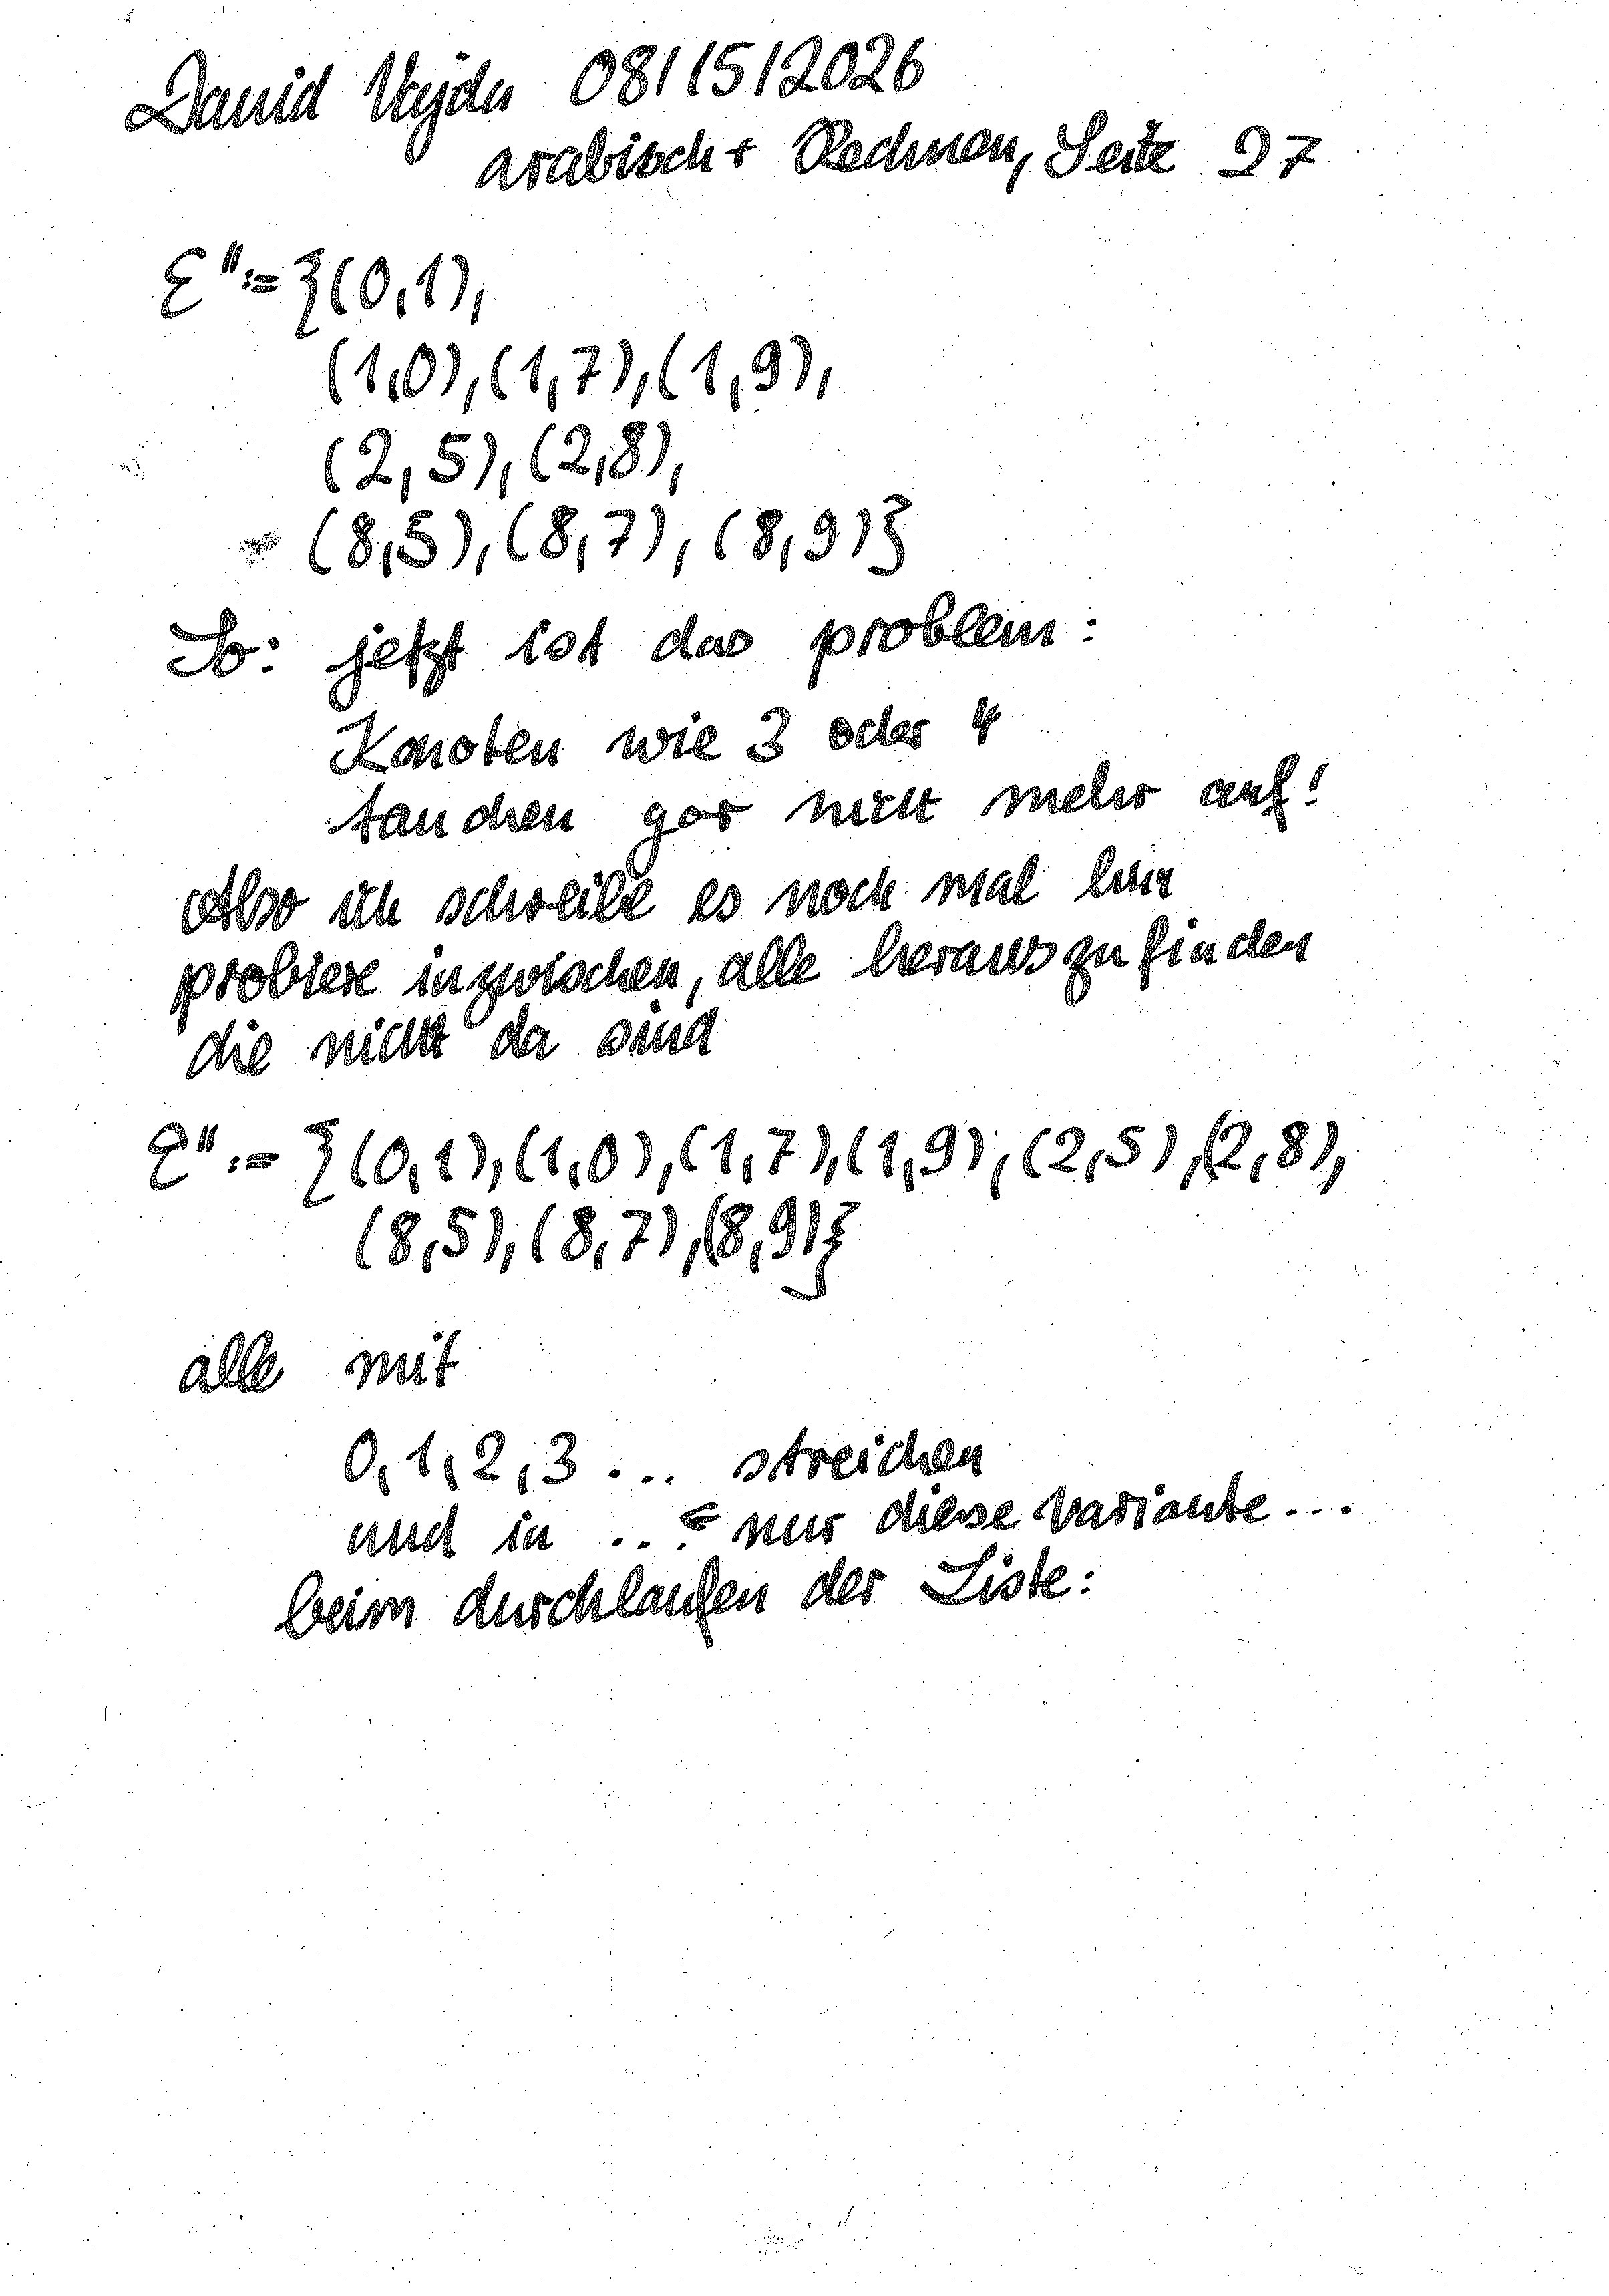 David Vajda 08/15/2026
arabisch + Rechnen, Seite 27
E'' := {(0,1),
(1,0),(1,7),(1,9),
(2,5),(2,8),
(8,5),(8,7),(8,9)}
So: jetzt ist das problem:
Knoten wie 3 oder 4
tauchen gar nicht mehr auf!
Also ich schreibe es noch mal hin
probiere inzwischen, alle herauszufinden
die nicht da sind
E'' := {(0,1),(1,0),(1,7),(1,9),(2,5),(2,8),
(8,5),(8,7),(8,9)}
alle mit
0,1,2,3 ... streichen
und in ... nur diese variante...
beim durchlaufen der Liste: